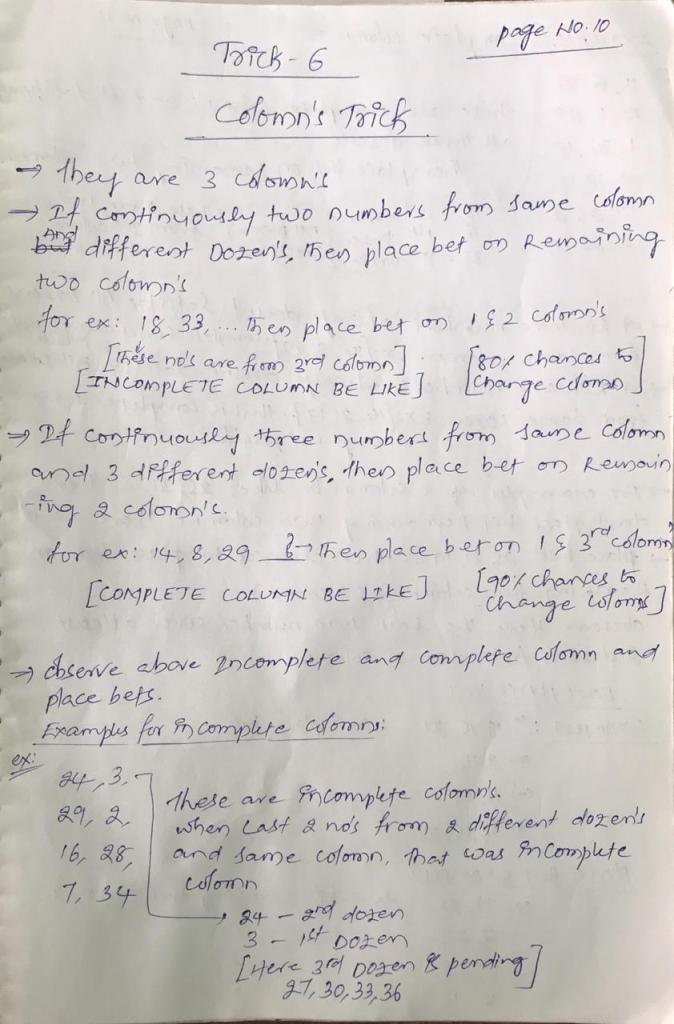 page No. 10
Trick - 6
Colomn's Trick
→ they are 3 colomn's
→ If continuously two numbers from same colomn
And
different Dozen's, then place bet on Remaining
two colomn's
for ex: 18, 33, ... then place bet on 1 & 2 colomn's
[These no's are from 3rd colomn] [80% chances to
[INCOMPLETE COLUMN BE LIKE] change colomn]
→ If continuously three numbers from same colomn
and 3 different dozen's, then place bet on Remain
-ing 2 colomn's.
for ex: 14, 8, 29 ? → Then place bet on 1 & 3rd colomn
[COMPLETE COLUMN BE LIKE] [90% chances to
change coloms]
→ observe above Incomplete and complete colomn and
place bets.
Examples for incomplete colomns:
ex:
24, 3,
29, 2,
16, 28,
7, 34
these are incomplete colomn's.
when Last 2 no's from 2 different dozen's
and same colomn, that was incomplete
colomn
→ 24 - 2nd dozen
3 - 1st Dozen
[Here 3rd Dozen is pending]
27, 30, 33, 36